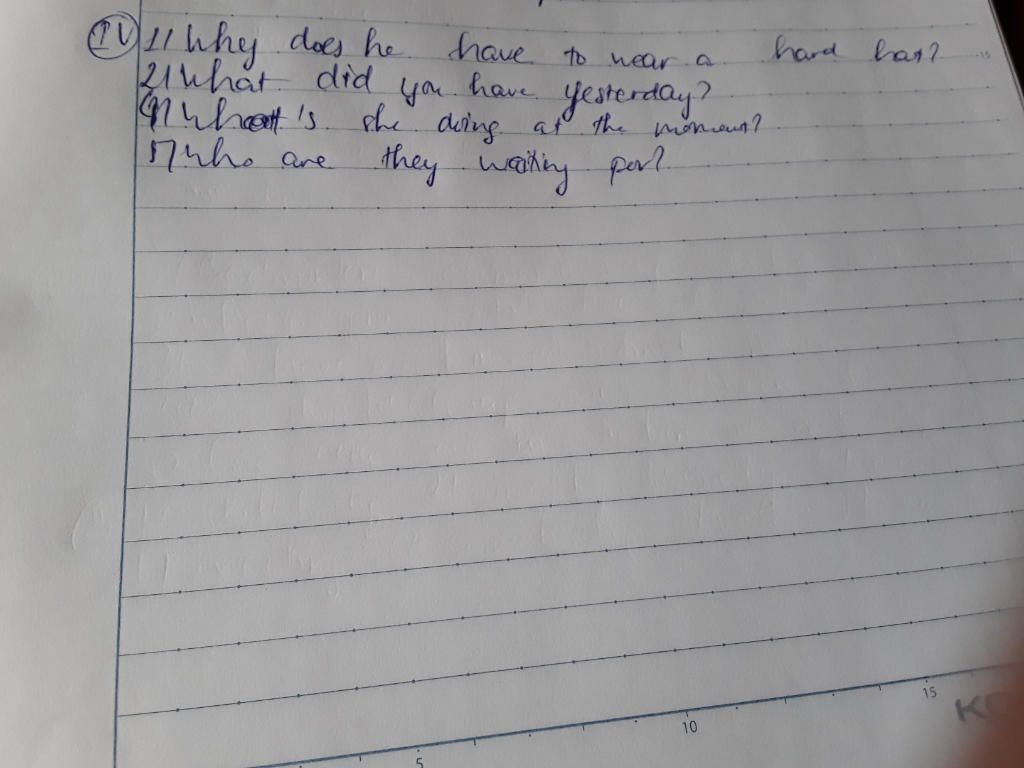 IV 1) Why does he have to wear a hard hat?
2) What did you have yesterday?
4) What's she doing at the moment?
5) Who are they waiting for?
5 10 15
KO